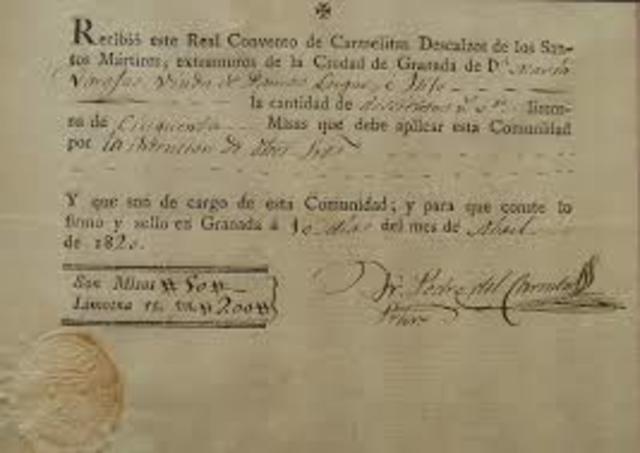 ✠
Recibió este Real Convento de Carmelitas Descalzos de los San-
tos Mártires, extramuros de la Ciudad de Granada de Dª María
Viuda de
la cantidad de doscientos rˢ vⁿ limos-
na de Cinquenta Misas que debe aplicar esta Comunidad
por la intencion de
Y que son de cargo de esta Comunidad; y para que conste lo
firmo y sello en Granada á 10 dias del mes de Abril
de 1820.
Son Misas #50#
Limosna rs. vn. #200#
Fr. Pedro del
Prior